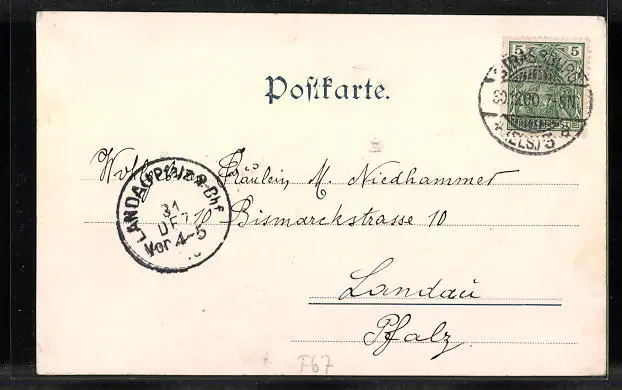 5 5
STRASSBURG
30.12.00.7-8N.
* (ELS.) 3 *
Postkarte.
Fräulein M. Niedhammer
LANDAU PFALZ Bhf
31
DEZ
Vor 4-5
10 Bismarckstrasse 10
Landau
Pfalz
F67